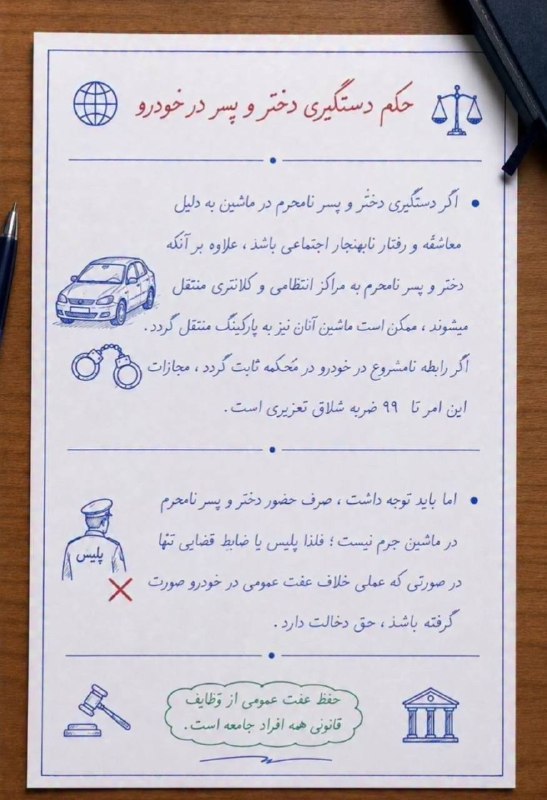 حکم دستگیری دختر و پسر در خودرو
اگر دستگیری دختر و پسر نامحرم در ماشین به دلیل
معاشقه و رفتار نابهنجار اجتماعی باشد ، علاوه بر آنکه
دختر و پسر نامحرم به مراکز انتظامی و کلانتری منتقل
میشوند ، ممکن است ماشین آنان نیز به پارکینگ منتقل گردد .
اگر رابطه نامشروع در خودرو در محکمه ثابت گردد ، مجازات
این امر تا ۹۹ ضربه شلاق تعزیری است .
اما باید توجه داشت ، صرف حضور دختر و پسر نامحرم
در ماشین جرم نیست ؛ فلذا پلیس یا ضابط قضایی تنها
در صورتی که عملی خلاف عفت عمومی در خودرو صورت
گرفته باشد ، حق دخالت دارد .
پلیس
حفظ عفت عمومی از وظایف
قانونی همه افراد جامعه است .